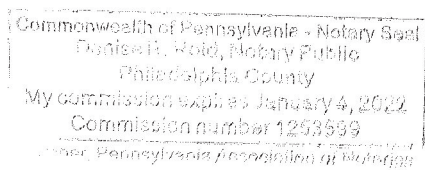 Commonwealth of Pennsylvania - Notary Seal
Denise R. Notary Public
Philadelphia County
My commission expires January 4, 2022
Commission number 1253599
Pennsylvania Association of Notaries